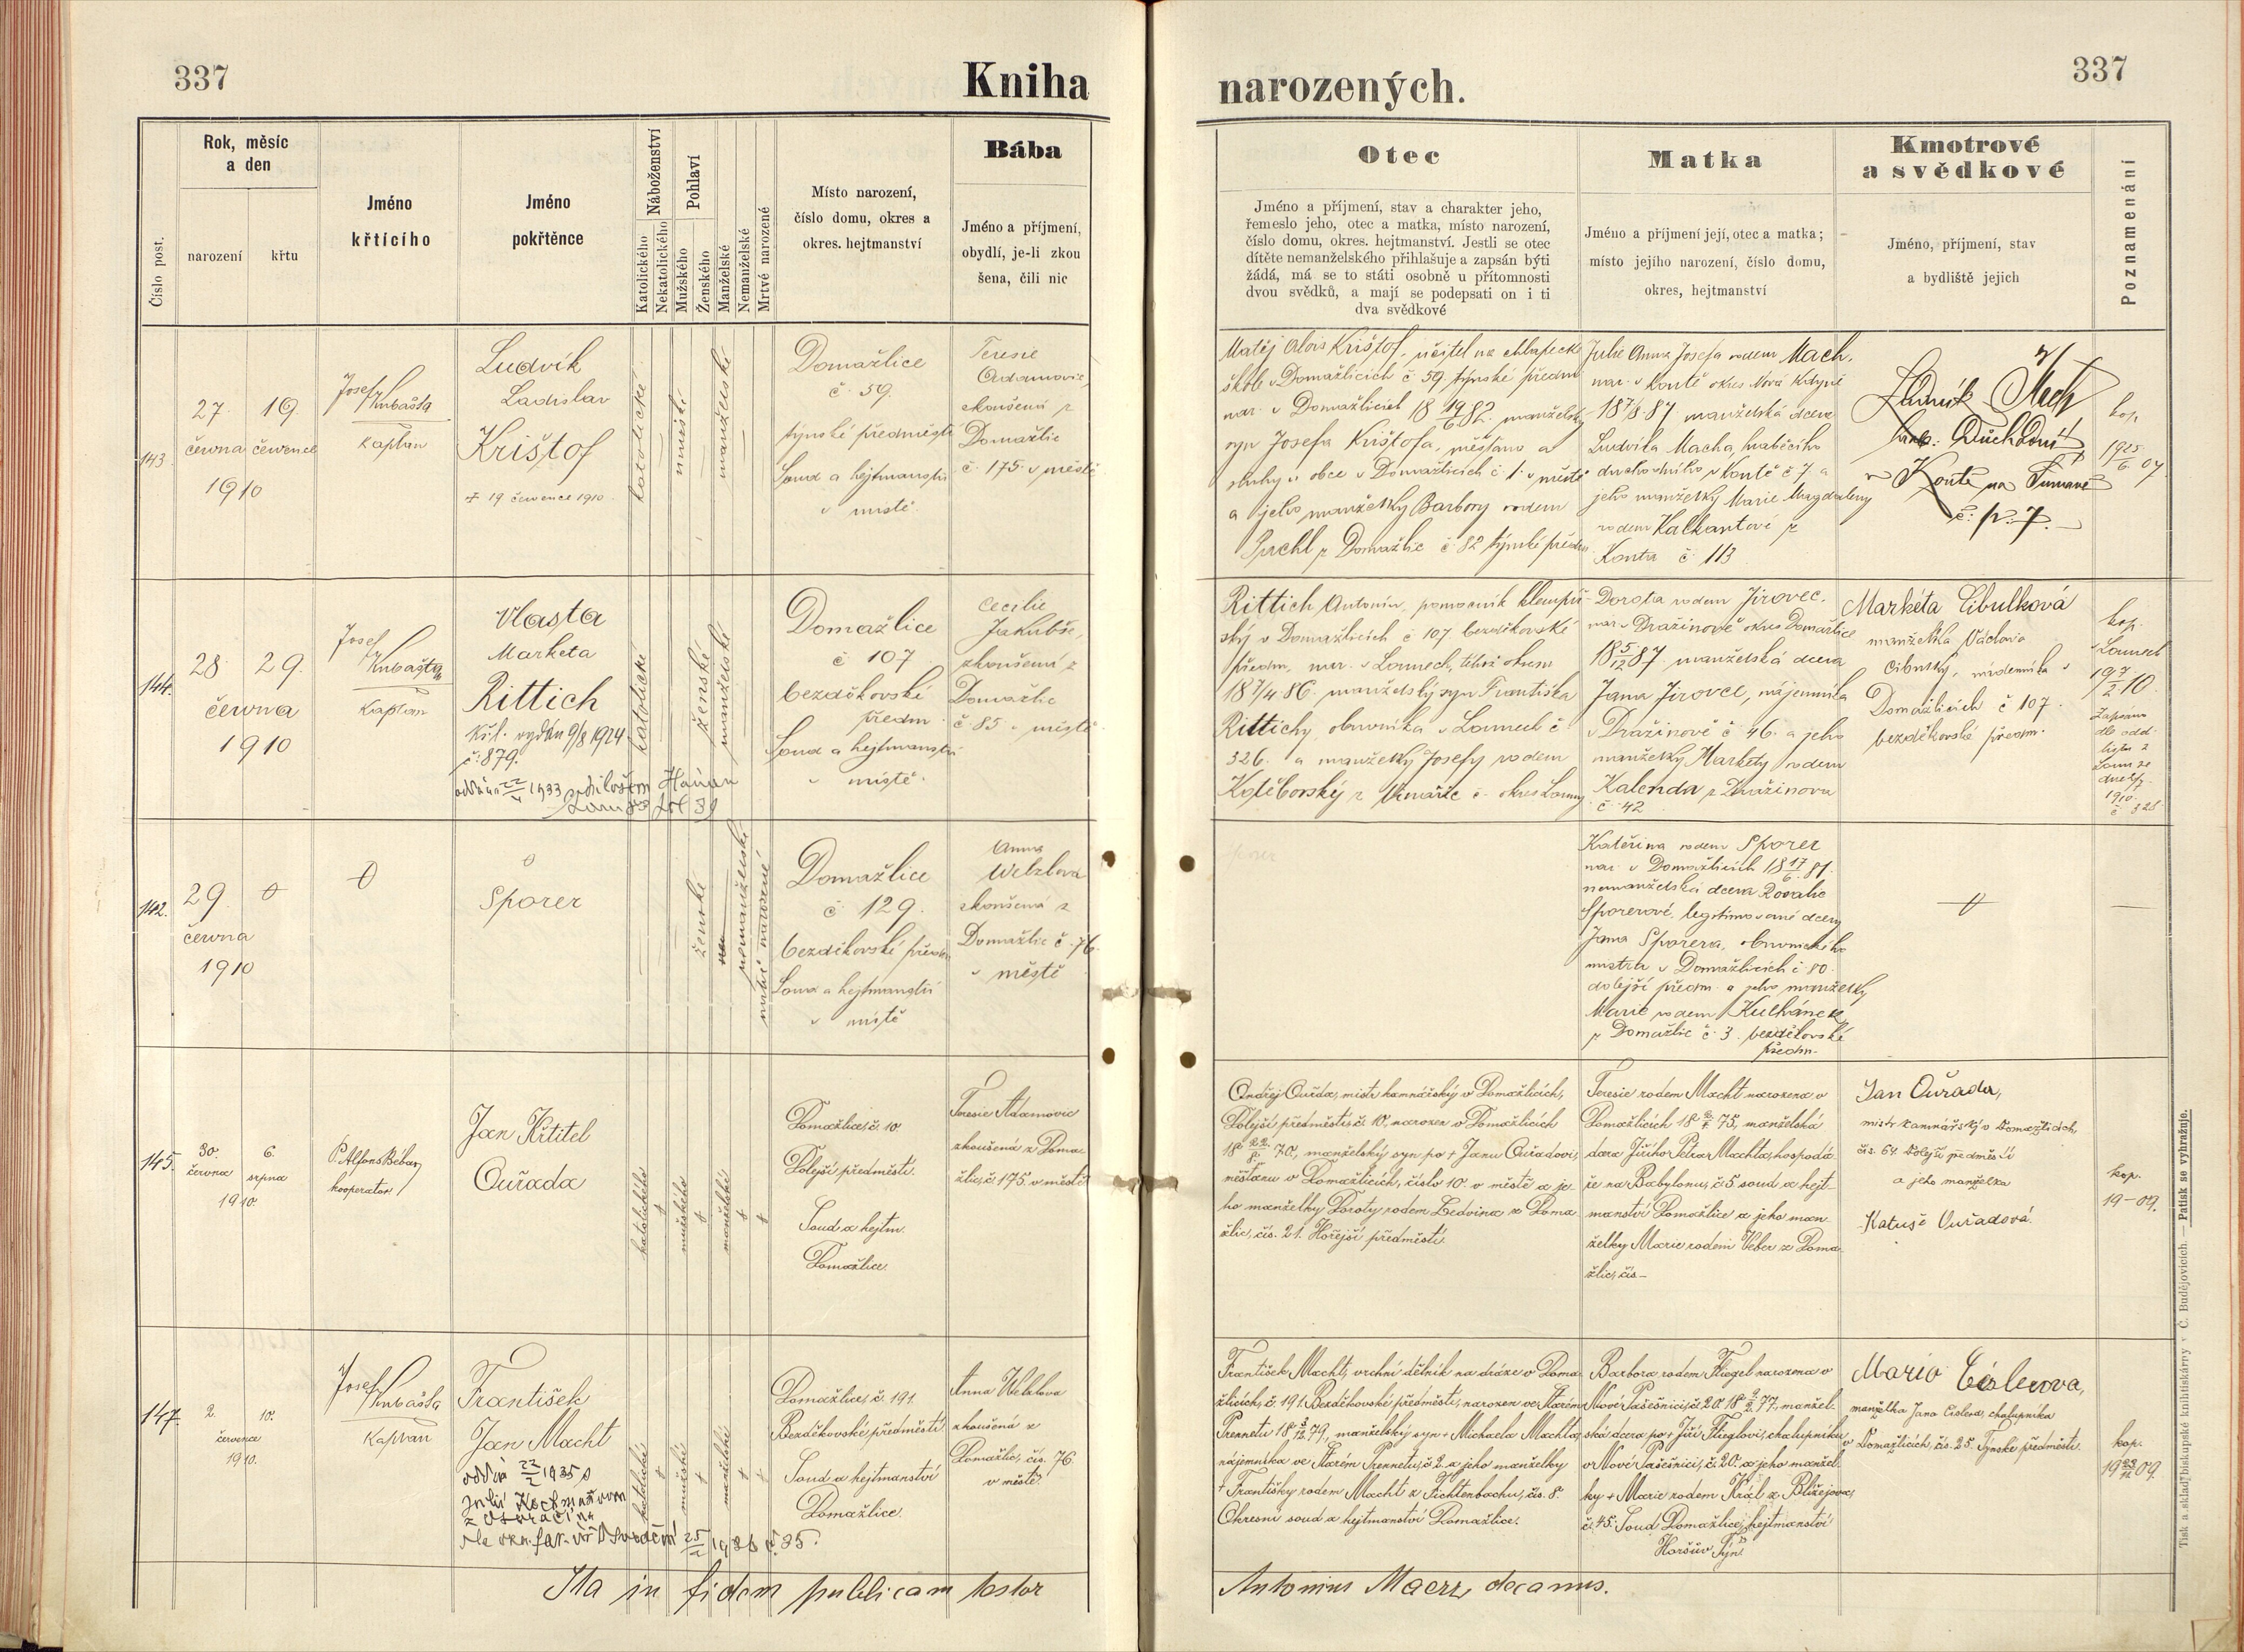 337
Kniha
narozených.
337
Číslo post.
Rok, měsíc
a den
narození
křtu
Jméno
křtícího
Jméno
pokřtěnce
Náboženství
Katolického
Nekatolického
Pohlaví
Mužského
Ženského
Manželské
Nemanželské
Mrtvé narozené
Místo narození,
číslo domu, okres a
okres. hejtmanství
Bába
Jméno a příjmení,
obydlí, je-li zkou
šena, čili nic
Otec
Jméno a příjmení, stav a charakter jeho,
řemeslo jeho, otec a matka, místo narození,
číslo domu, okres. hejtmanství. Jestli se otec
dítěte nemanželského přihlašuje a zapsán býti
žádá, má se to státi osobně u přítomnosti
dvou svědků, a mají se podepsati on i ti
dva svědkové
Matka
Jméno a příjmení její, otec a matka;
místo jejího narození, číslo domu,
okres, hejtmanství
Kmotrové
a svědkové
Jméno, příjmení, stav
a bydliště jejich
Poznamenání
143.
27. června
19. července
1910
Josef Kubašta
kaplan
Ludvík
Ladislav
Krištof
19 července 1910
katolické
mužské
manželské
Domažlice
č. 59.
týnské předměstí
Soud a hejtmanství
v místě.
Teresie
Adamovic,
zkoušená z
Domažlic
č. 175. v městě
Matěj Alois Krištof, učitel na chlapecké
škole v Domažlicích č 59. týnské předm
nar. v Domažlicích 18 19/6 82. manželský
syn Josefa Krištofa, měšťana a
sluhy obce v Domažlicích č. 1. v městě
a jeho manželky Barbory rodem
Puchl z Domažlic č 82 týnské předm
Julie Anna Josefa rodem Mach.
nar. v Koutě okres Nová Kdyně
18 7/8 87 manželská dcera
Ludvíka Macha, hraběcího
v Koutě č 7. a
jeho manželky Marie Magdaleny
rodem Kalkantové z
Kouta č 113
Ludvík Mach
hrab. Důchodní
v Koutě na Šumavě
č. p. 7.
kop.
144.
28. 29.
června
1910
Josef Kubašta
kaplan
Vlasta
Marketa
Rittich
Kř. l. vydán 9/8 1924
č. 879.
katolické
ženské
manželské
Domažlice
č 107
bezděkovské
předm.
Soud a hejtmanství
v místě.
Cecilie
Jakubše,
zkoušená z
Domažlic
č 85 v městě
Rittich Antonín, pomocník klempíř-
ský v Domažlicích č 107. bezděkovské
předm, nar. v Lounech, téhož okresu
18 7/4 86. manželský syn Františka
Rittichy, obuvníka v Lounech č
326. a manželky Josefy rodem
Dorota rodem Jirovec.
nar. v Dražinově okres Domažlice
18 5/12 87. manželská dcera
Jana Jirovce, nájemníka
v Dražinově č 46. a jeho
manželky Markety rodem
Kalenda z Dražinova
č 42
Markéta Cibulková
manželka Václava
Cibulky,
Domažlicích č 107.
bezděkovské předm.
kop.
v Lounech
19 7/2 10.
142.
29.
června
1910
Sporer
ženské
nemanželské
mrtvě narozené
Domažlice
č 129.
bezděkovské předm
Soud a hejtmanství
v místě
Anna
Welzlova
zkoušená z
Domažlic č. 76.
v městě
Kateřina rodem Sporer
nar. v Domažlicích 18 17/6 81.
nemanželská dcera Rosalie
Sporerové, legitimované dcery
Jana Sporera, obuvnického
mistra v Domažlicích č 80
dolejší předm. a jeho manželky
Marie rodem Kulhánek
z Domažlic č. 3. bezděkovské
předm.
145.
30. června
6. srpna
1910.
P. Alfons Bébar,
kooperator
Jan Křtitel
Ouřada
katolického
mužského
manželské
Domažlice, č. 10.
Dolejší předměstí.
Soud a hejtm.
Domažlice.
Teresie Adamovic
zkoušená z Doma
žlic, č. 175. v městě
Ondřej Ouřada, mistr kamnářský v Domažlicích,
Dolejší předměstí, č. 10, narozen v Domažlicích
70., manželský syn po † Janu Ouřadovi,
měšťanu v Domažlicích, číslo 10. v městě a je-
ho manželky Doroty rodem Ledvina z Doma
žlic, čís. 21. Hořejší předměstí.
Teresie rodem Macht narozena v
Domažlicích 75, manželská
dcera Jiřího Petra Machta, hospodá
ře na Babylonu, č. 5 soud a hejt-
manství Domažlice a jeho man
želky Marie rodem Veber z Doma
žlic, čís –
Jan Ouřada,
mistr kamnářský v Domažlicích,
čís. 64. Dolejší předměstí
a jeho manželka
Katuše Ouřadová.
kop.
19–09.
147.
2. 10.
července
1910.
Josef Kubašta
kaplan
František
Jan Macht
katolické
mužské
manželské
Domažlice, č. 191.
Bezděkovské předměstí.
Soud a hejtmanství
Domažlice.
Anna Welzlova
zkoušená z
Domažlic, čís. 76.
v městě
František Macht, vrchní dělník na dráze v Doma
žlicích, č. 191. Bezděkovské předměstí, narozen ve Starém
Prennetu 18 3/12 79., manželský syn † Michaela Machta,
nájemníka ve Starém Prennetu, č. 2. a jeho manželky
† Františky rodem Macht z Fichtenbachu, čís. 8.
Okresní soud a hejtmanství Domažlice.
Barbora rodem Fliegel narozena v
Nové Pašešnici, č. 20. 77., manžel-
ská dcera po † Jiří Flieglovi, chalupníku
v Nové Pašešnici, č. 20. a jeho manžel
ky † Marie rodem Král z Blížejova,
č. 45. Soud Domažlice, hejtmanství
Horšův Týn.
Marie Cislerova,
manželka Jana Cislera, chalupníka
v Domažlicích, čís. 25. Týnské předměstí.
kop.
Ita in fidem publicam testor
Antonius Maerz, decanus.
Tisk a sklad biskupské knihtiskárny v Č. Budějovicích. — Patisk se vyhražuje.